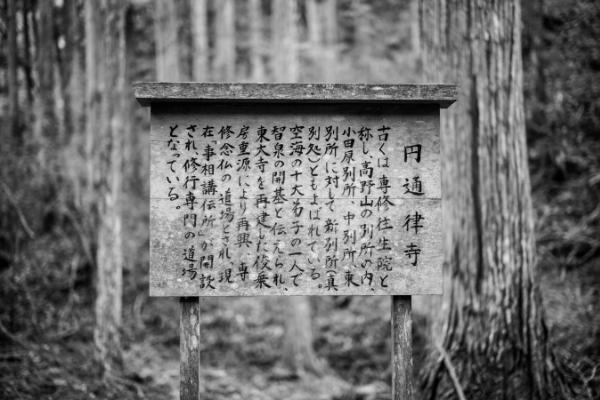 円通律寺
古くは専修往生院と
称し、高野山の別所の内、
小田原別所、中別所、東
別所に対して新別所(真
別処)ともよばれている。
空海の十大弟子の一人で
智泉の開基と伝えられ、
東大寺を再建した俊乗
房重源により再興、専
修念仏の道場とされ、現
在「事相講伝所」が開設
され修行専門の道場
となっている。